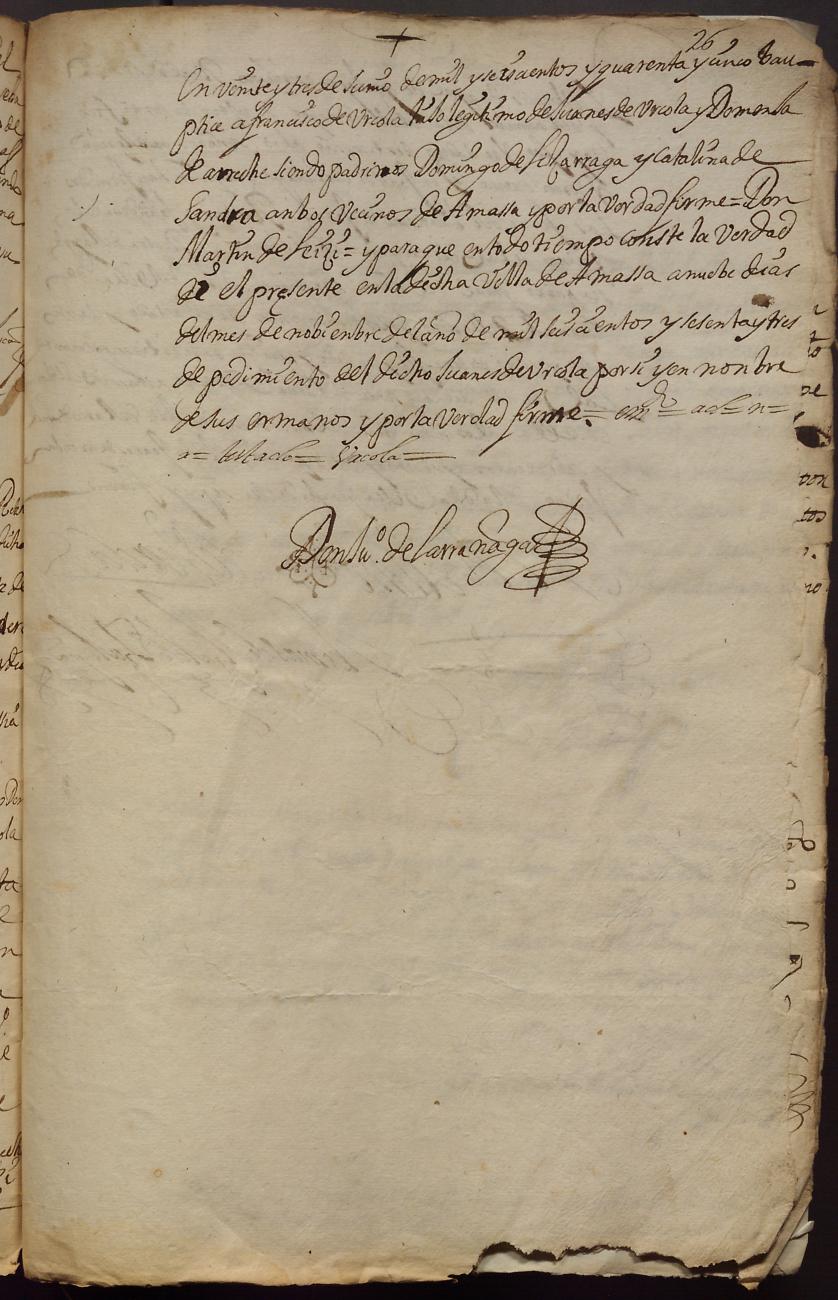 26
En veinte y tres de Junio de mil y seiscientos y quarenta y cinco bau-
ptice a francisco de Urcola hijo legitimo de Juanes de Urcola y Domensa
de arreche siendo padrinos Domingo de Lizarraga y Catalina de
Sandra anbos vecinos de Amassa y por la verdad firme = Don
Martin de = y para que en todo tiempo conste la verdad
di el presente en la dicha villa de Amassa a nuebe dias
del mes de nobienbre del año de mil seiscientos y sesenta y tres
de pedimiento del dicho Juanes de Urcola por si y en nonbre
de sus ermanos y por la verdad firme = = = n =
a = testado = Urcola =
Don Ju.º de Larrañaga